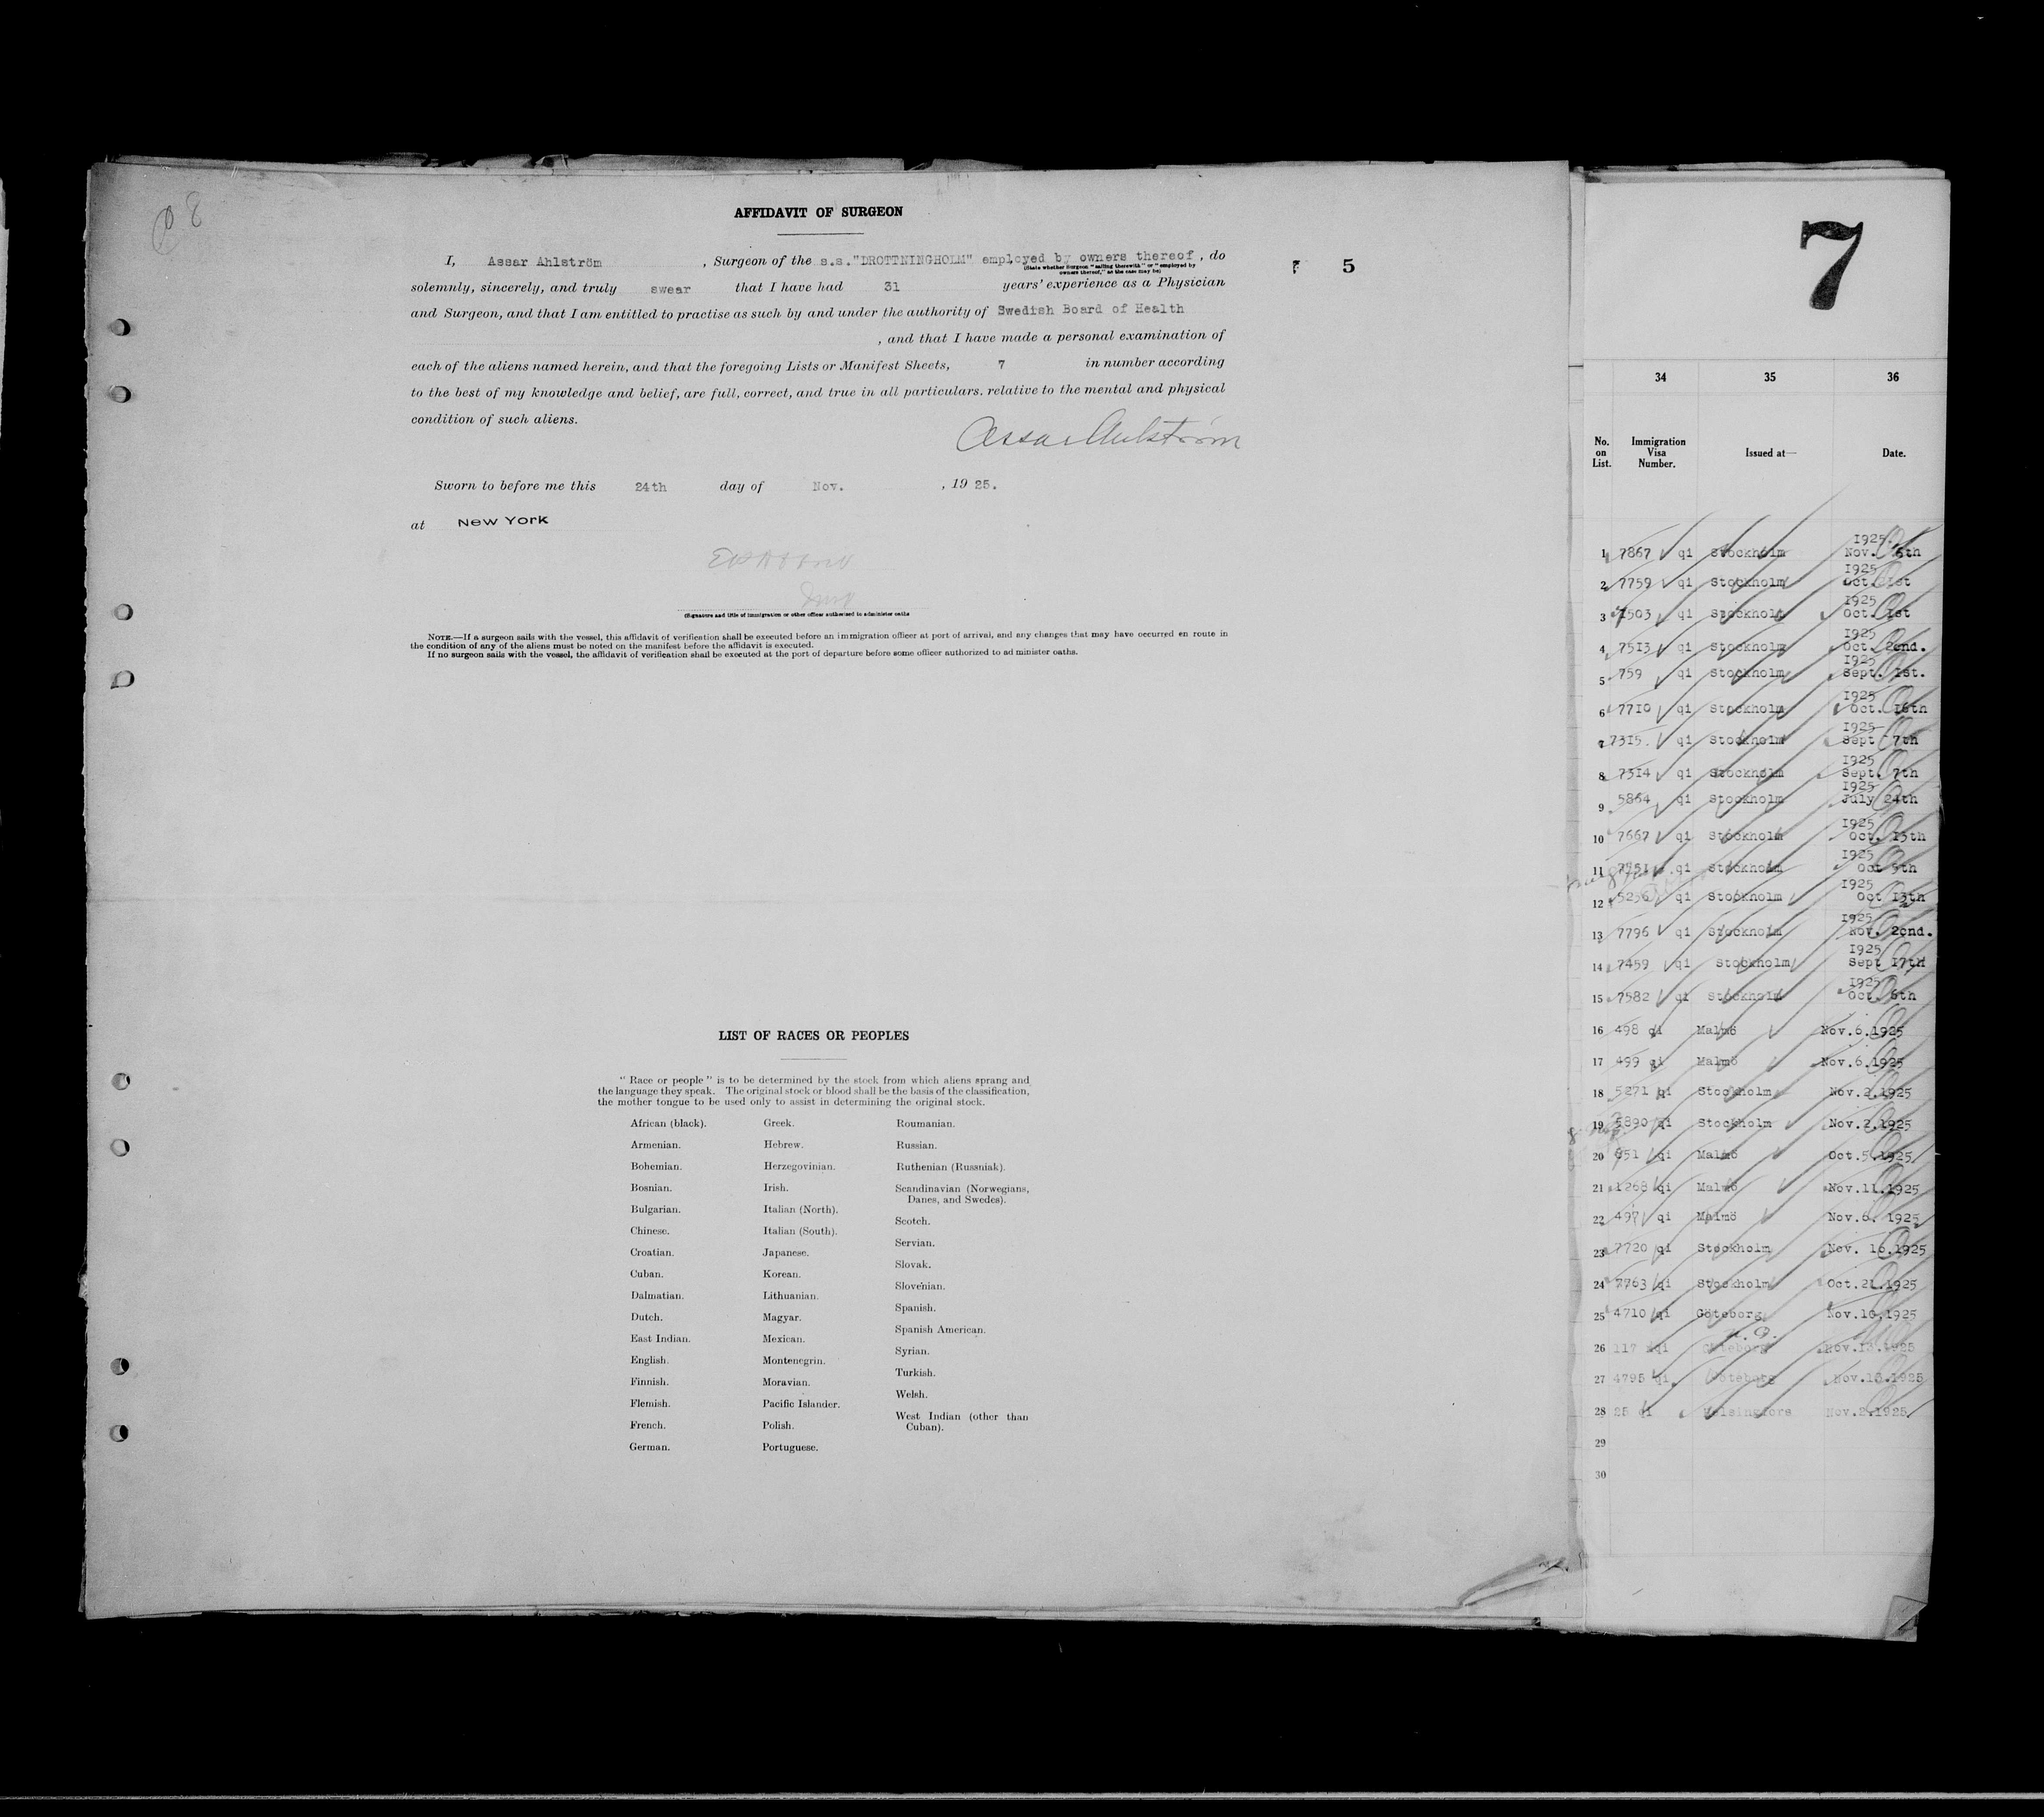 AFFIDAVIT OF SURGEON
I, Assar Ahlström , Surgeon of the s.s."DROTTNINGHOLM" employed by owners thereof , do
(State whether Surgeon "sailing therewith" or "employed by
owners thereof," as the case may be)
5
solemnly, sincerely, and truly swear that I have had 31 years' experience as a Physician
and Surgeon, and that I am entitled to practise as such by and under the authority of Swedish Board of Health
, and that I have made a personal examination of
each of the aliens named herein, and that the foregoing Lists or Manifest Sheets, 7 in number according
to the best of my knowledge and belief, are full, correct, and true in all particulars. relative to the mental and physical
condition of such aliens.
Assar Ahlström
Sworn to before me this 24th day of Nov. , 19 25.
at New York
(Signature and title of immigration or other officer authorized to administer oaths
NOTE.—If a surgeon sails with the vessel, this affidavit of verification shall be executed before an immigration officer at port of arrival, and any changes that may have occurred en route in
the condition of any of the aliens must be noted on the manifest before the affidavit is executed.
If no surgeon sails with the vessel, the affidavit of verification shall be executed at the port of departure before some officer authorized to ad minister oaths.
LIST OF RACES OR PEOPLES
"Race or people" is to be determined by the stock from which aliens sprang and
the language they speak. The original stock or blood shall be the basis of the classification,
the mother tongue to be used only to assist in determining the original stock.
African (black).
Armenian.
Bohemian.
Bosnian.
Bulgarian.
Chinese.
Croatian.
Cuban.
Dalmatian.
Dutch.
East Indian.
English.
Finnish.
Flemish.
French.
German.
Greek.
Hebrew.
Herzegovinian.
Irish.
Italian (North).
Italian (South).
Japanese.
Korean.
Lithuanian.
Magyar.
Mexican.
Montenegrin.
Moravian.
Pacific Islander.
Polish.
Portuguese.
Roumanian.
Russian.
Ruthenian (Russniak).
Scandinavian (Norwegians,
Danes, and Swedes).
Scotch.
Servian.
Slovak.
Slovenian.
Spanish.
Spanish American.
Syrian.
Turkish.
Welsh.
West Indian (other than
Cuban).
7
34 35 36
No. on List. Immigration Visa Number. Issued at— Date.
1 7867 qi Stockholm 1925. Nov. 6th
2 7759 qi Stockholm 1925 Oct. 1st
3 7503 qi Stockholm 1925 Oct. 1st
4 7513 qi Stockholm 1925 Oct. 2end.
5 759 qi Stockholm 1925 Sept. 1st.
6 7710 qi Stockholm 1925 Oct. 16th
7 7315. qi Stockholm 1925 Sept 7th
8 7314 qi Stockholm 1925 Sept. 7th
9 5864 qi Stockholm 1925 July 24th
10 7667 qi Stockholm 1925 Oct. 13th
11 qi Stockholm 1925 Oct 9th
12 5256 qi Stockholm 1925 Oct 13th
13 7796 qi Stockholm 1925 Nov. 2end.
14 7459 qi Stockholm 1925 Sept 17th
15 7582 qi Stockholm 1925 Oct. 6th
16 498 qi Malmö Nov.6.1925
17 499 qi Malmö Nov.6.1925
18 5271 qi Stockholm Nov.2.1925
19 5890 qi Stockholm Nov.2.1925
20 qi Malmö Oct.5.1925
21 1268 qi Malmö Nov.11.1925
22 497 qi Malmö Nov.6. 1925
23 7720 qi Stockholm Nov. 16.1925
24 7763 qi Stockholm Oct.21.1925
25 4710 qi Göteborg Nov.10,1925
26 117 qi Göteborg Nov.13.1925
27 4795 qi. Göteborg Nov.13.1925
28 25 qi Helsingfors Nov.2.1925
29
30